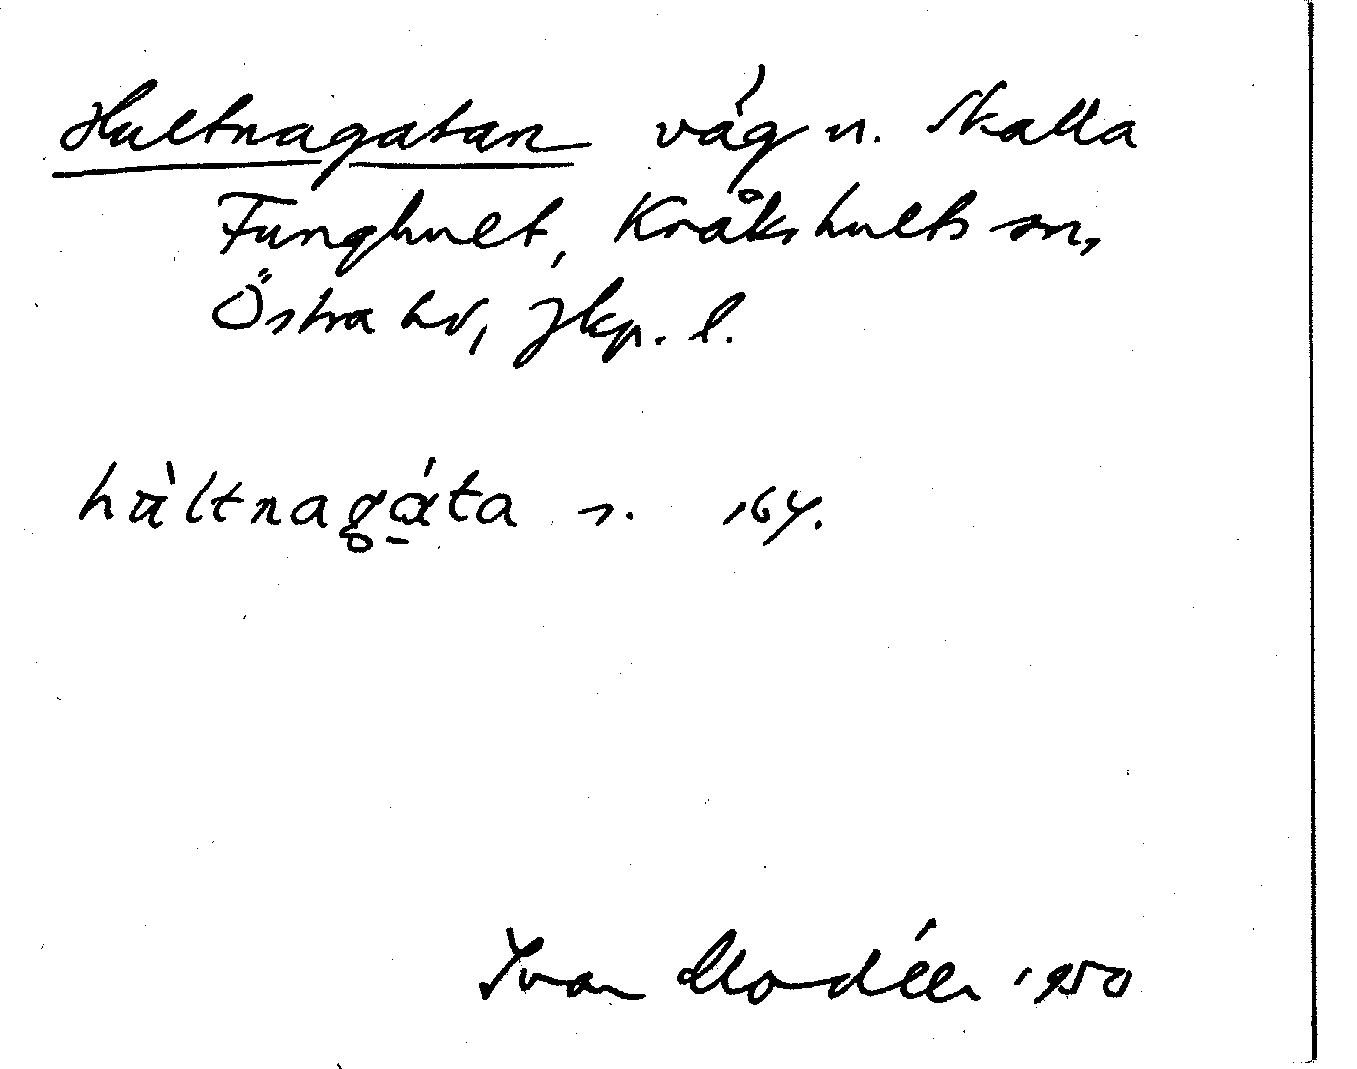 Hultnagatan väg n. Skalla
Funghult, Kråkshults sn,
Östra hd, Jkp. l.
hu̇̀ltnagáta s. 164.
Ivar Modéer 1950